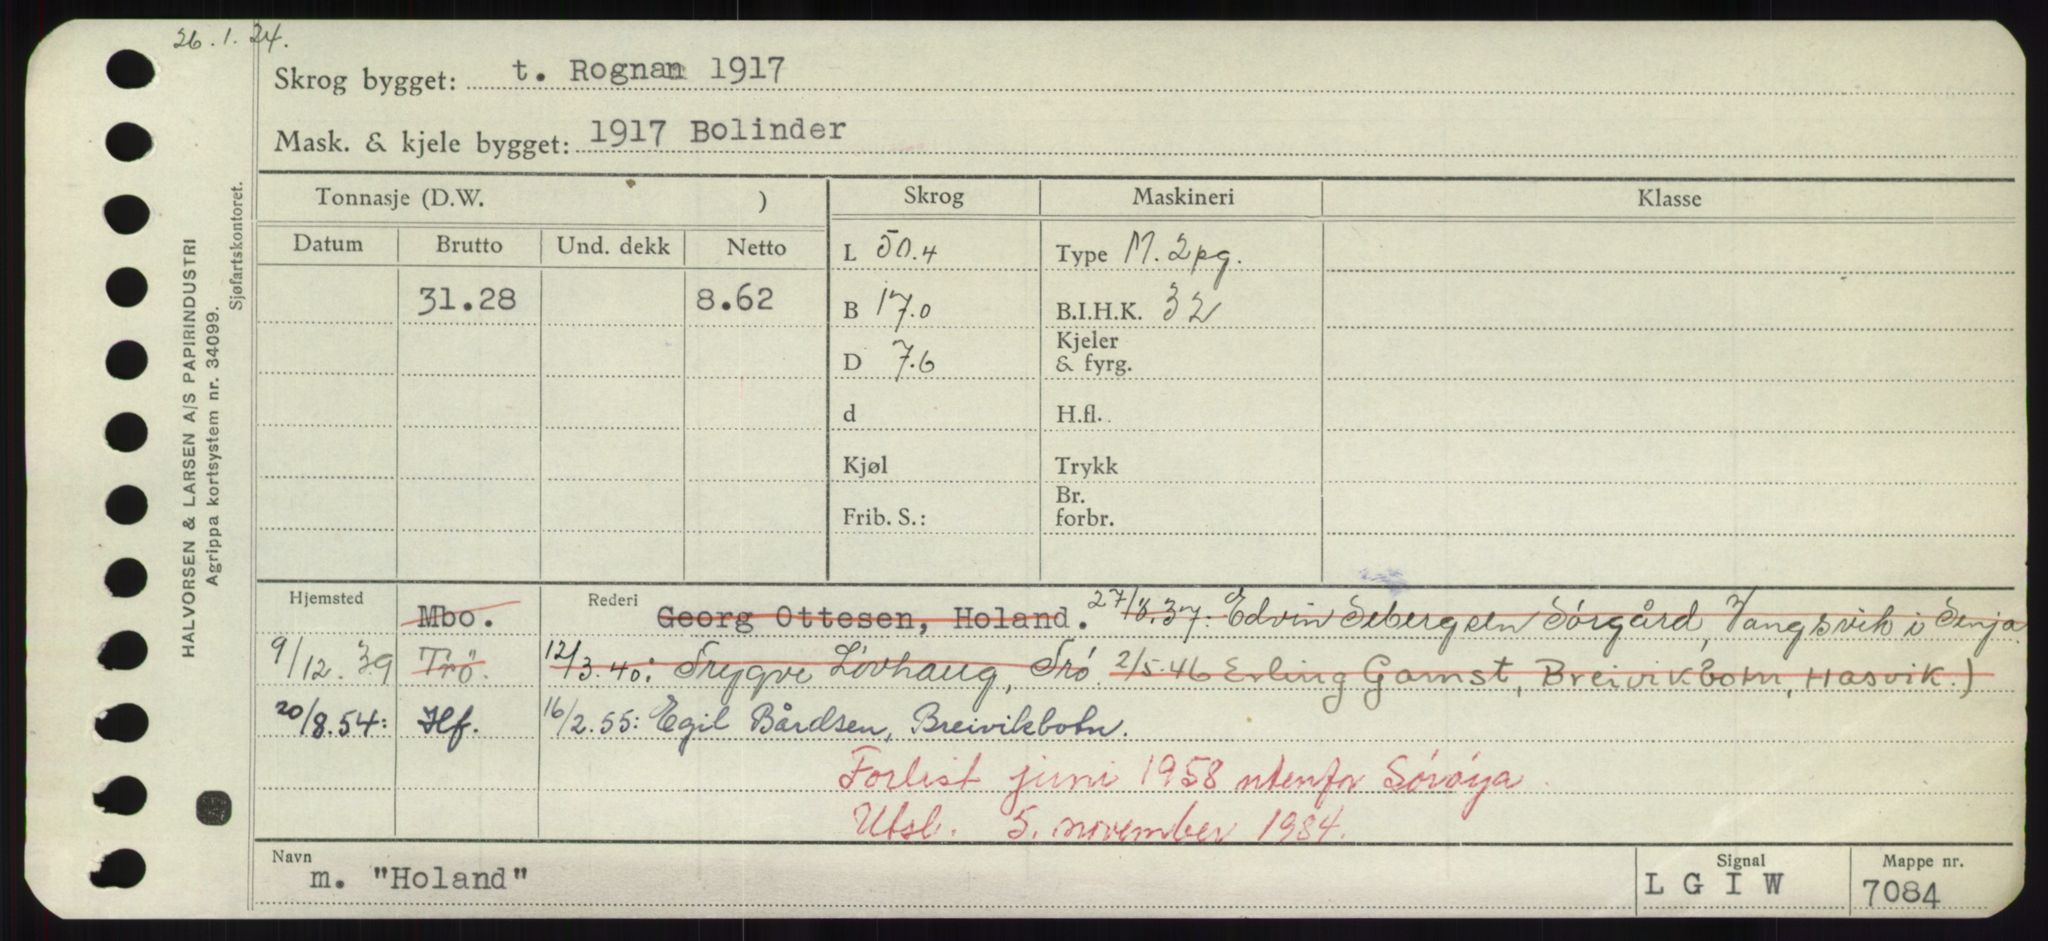 26.1.24.
Skrog bygget: t. Rognan 1917
Mask. & kjele bygget: 1917 Bolinder
Tonnasje (D.W. )
Skrog
Maskineri
Klasse
Datum
Brutto
Und. dekk
Netto
L 50.4
Type M. 2pg.
31.28
8.62
B 17.0
B.I.H.K. 32
D 7.6
Kjeler
& fyrg.
d
H.fl.
Kjøl
Trykk
Frib. S.:
Br.
forbr.
Hjemsted
Mbo.
Rederi
Georg Ottesen, Holand. 27/8.37: Edvin Sebergsen Sørgård, Vangsvik i Senja
9/12.39 Trö. 12/3.40: Trygve Løvhaug, Trö. 2/5.46 Erling Gamst, Breivikbotn, Hasvik.)
20/8.54: Hf. 16/2.55: Egil Bårdsen, Breivikbotn.
Forlist juni 1958 utenfor Sörøya.
Utsl. 5. november 1984.
Navn
m. "Holand"
Signal
L G I W
Mappe nr.
7084
HALVORSEN & LARSEN A/S PAPIRINDUSTRI
Agrippa kortsystem nr. 34099.
Sjøfartskontoret.